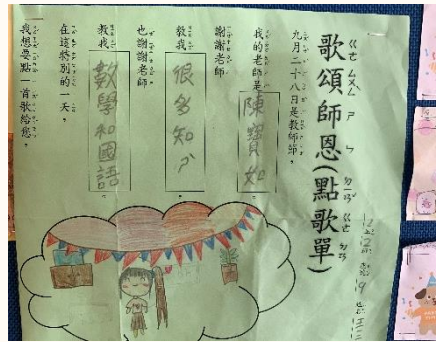 歌頌師恩(點歌單)
九月二十八日是教師節，
我的老師是陳寶如
謝謝老師
教我很多知ㄕˋ
也謝謝老師
教我數學和國語。
在這特別的一天，
我想要點一首歌給您。